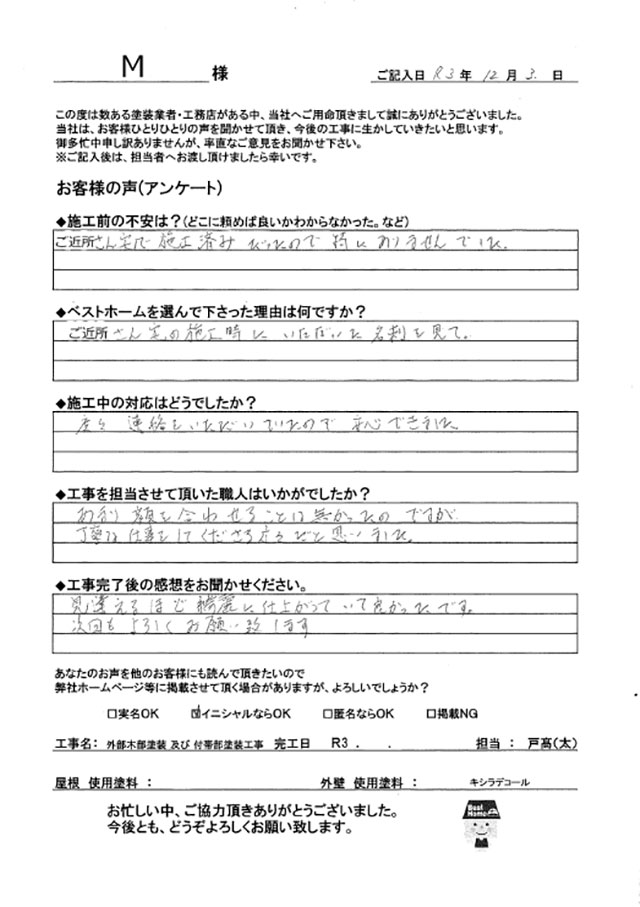 M 様
ご記入日 R3年 12月 3日
この度は数ある塗装業者・工務店がある中、当社へご用命頂きまして誠にありがとうございました。
当社は、お客様ひとりひとりの声を聞かせて頂き、今後の工事に生かしていきたいと思います。
御多忙中申し訳ありませんが、率直なご意見をお聞かせ下さい。
※ご記入後は、担当者へお渡し頂けましたら幸いです。
お客様の声(アンケート)
◆施工前の不安は？(どこに頼めば良いかわからなかった。など)
ご近所さん宅で施工済みだったので特にありませんでした。
◆ベストホームを選んで下さった理由は何ですか？
ご近所さん宅の施工時にいただいた名刺を見て。
◆施工中の対応はどうでしたか？
度々連絡をいただいていたので安心できました。
◆工事を担当させて頂いた職人はいかがでしたか？
あまり顔を合わせることは無かったのですが
丁寧な仕事をしてくださる方々だと思いました。
◆工事完了後の感想をお聞かせください。
見違えるほど綺麗に仕上がっていて良かったです。
次回もよろしくお願い致します
あなたのお声を他のお客様にも読んで頂きたいので
弊社ホームページ等に掲載させて頂く場合がありますが、よろしいでしょうか？
□実名OK ☑イニシャルならOK □匿名ならOK □掲載NG
工事名： 外部木部塗装 及び 付帯部塗装工事 完工日 R3 . . 担当： 戸高(太)
屋根 使用塗料： 外壁 使用塗料： キシラデコール
お忙しい中、ご協力頂きありがとうございました。
今後とも、どうぞよろしくお願い致します。
Best Home